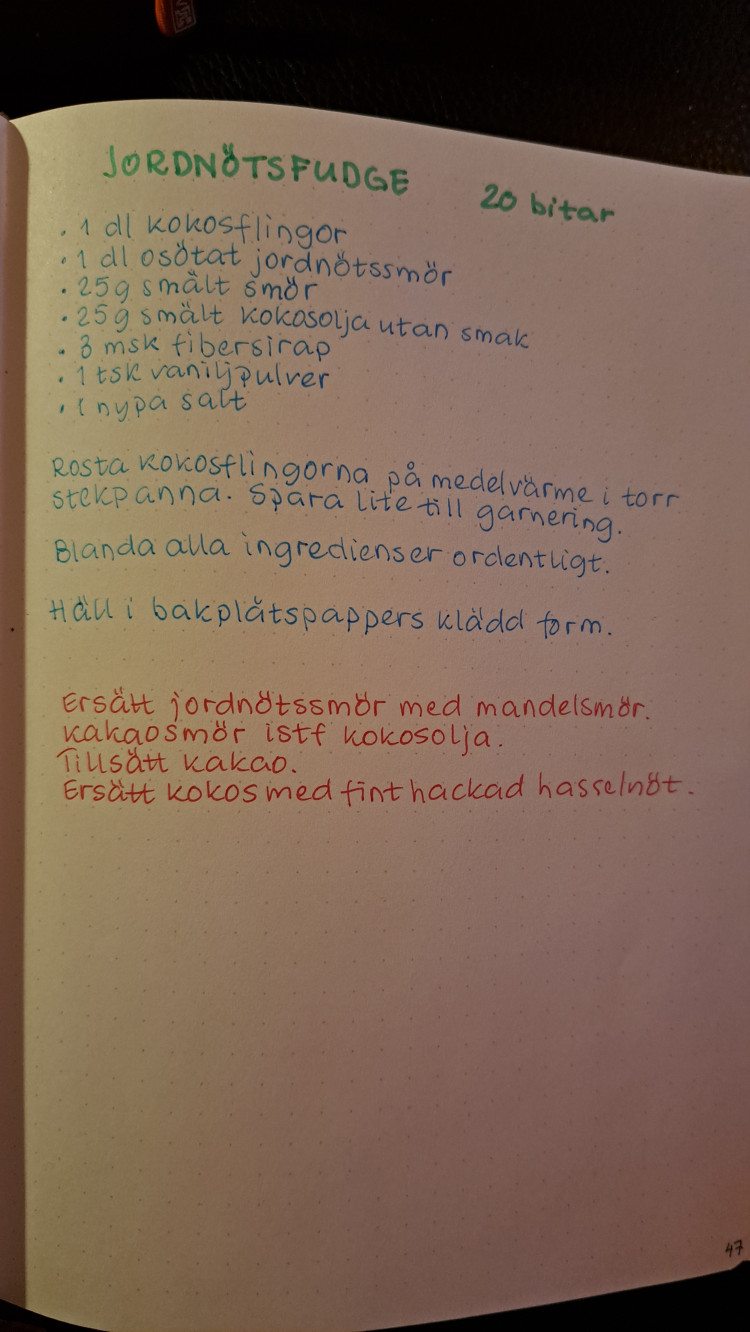 JORDNÖTSFUDGE 20 bitar
· 1 dl kokosflingor
· 1 dl osötat jordnötssmör
· 25g smält smör
· 25g smält kokosolja utan smak
· 3 msk fibersirap
· 1 tsk vaniljpulver
· 1 nypa salt
Rosta kokosflingorna på medelvärme i torr
stekpanna. Spara lite till garnering.
Blanda alla ingredienser ordentligt.
Häll i bakplåtspappers klädd form.
Ersätt jordnötssmör med mandelsmör.
Kakaosmör istf kokosolja.
Tillsätt kakao.
Ersätt kokos med fint hackad hasselnöt.
47